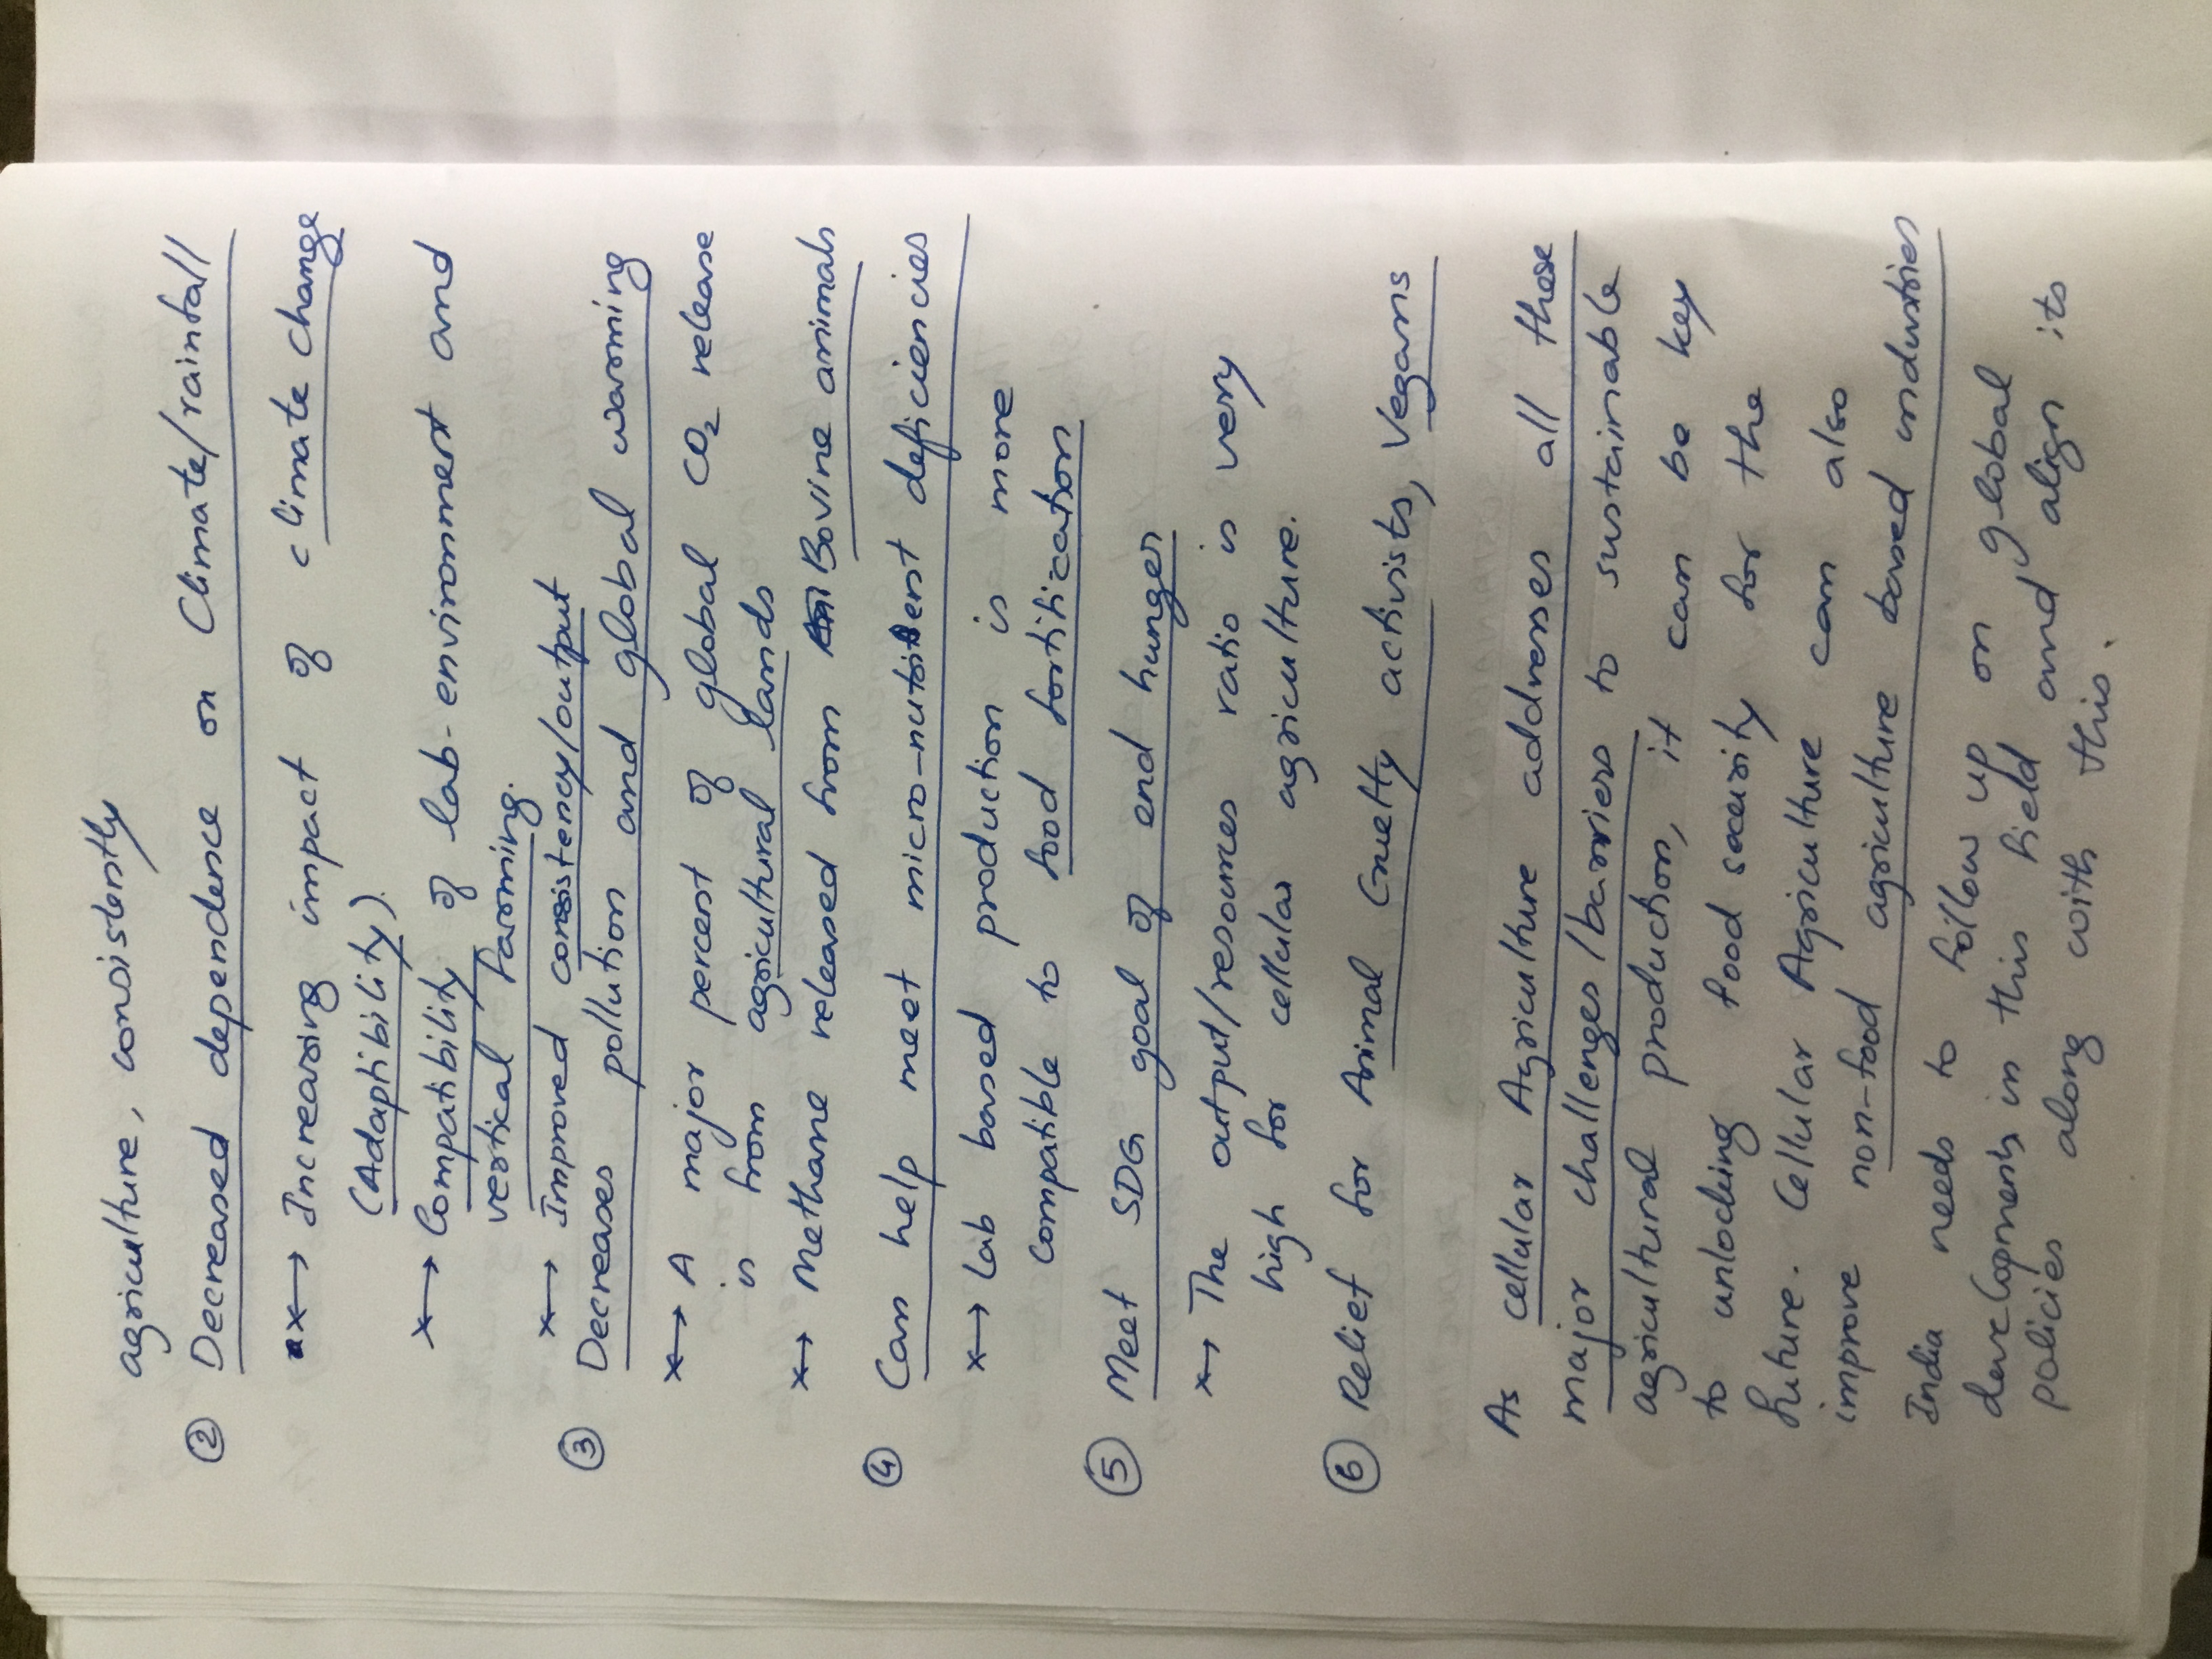 agriculture, consistently
② Decreased dependence on Climate/rainfall
x→ Increasing impact of climate change
(Adaptibility)
x→ Compatibility of lab-environment and
vertical farming.
x→ Improved consistency/output
③ Decreases pollution and global warming
x→ A major percent of global CO₂ release
is from agricultural lands
x→ Methane released from Bovine animals
④ Can help meet micro-nutrient deficiencies
x→ Lab based production is more
compatible to food fortification
⑤ Meet SDG goal of end hunger
x→ The output/resources ratio is very
high for cellular agriculture.
⑥ Relief for Animal Cruelty activists, Vegans
As cellular Agriculture addresses all these
major challenges/barriers to sustainable
agricultural production, it can be key
to unlocking food security for the
future. Cellular Agriculture can also
improve non-food agriculture based industries
India needs to follow up on global
developments in this field and align its
policies along with this.